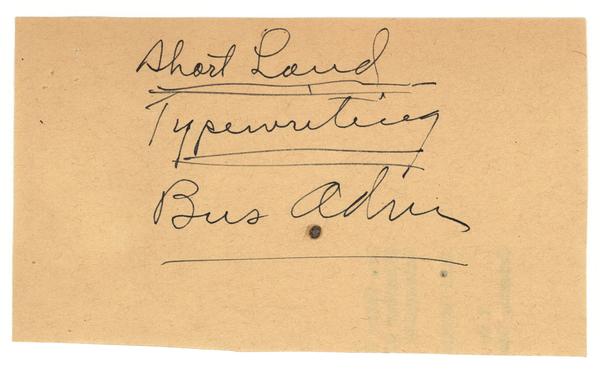 Short Land
Typewriting
Bus Adm